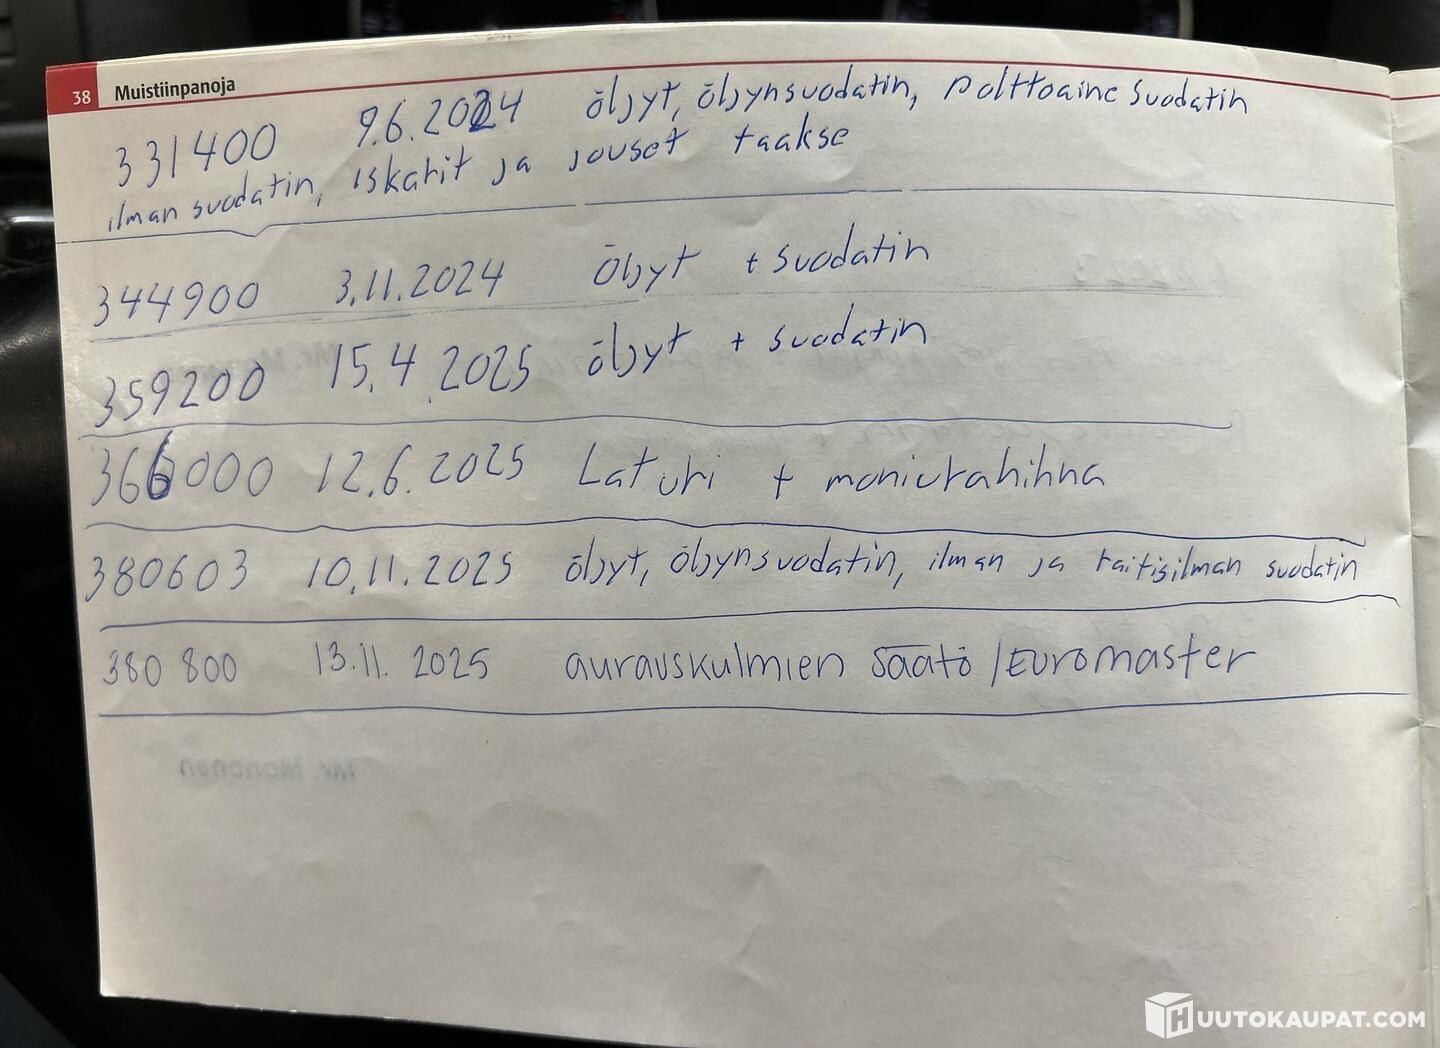 38 Muistiinpanoja
331400 9.6.2024 öljyt, öljynsuodatin, polttoaine suodatin
ilman suodatin, iskarit ja jouset taakse
344900 3.11.2024 öljyt + suodatin
359200 15.4.2025 öljyt + suodatin
366000 12.6.2025 Laturi + moniurahihna
380603 10.11.2025 öljyt, öljynsuodatin, ilman ja raitisilman suodatin
380 800 13.11.2025 aurauskulmien säätö /Euromaster
Mr. Mononen
HUUTOKAUPAT.COM